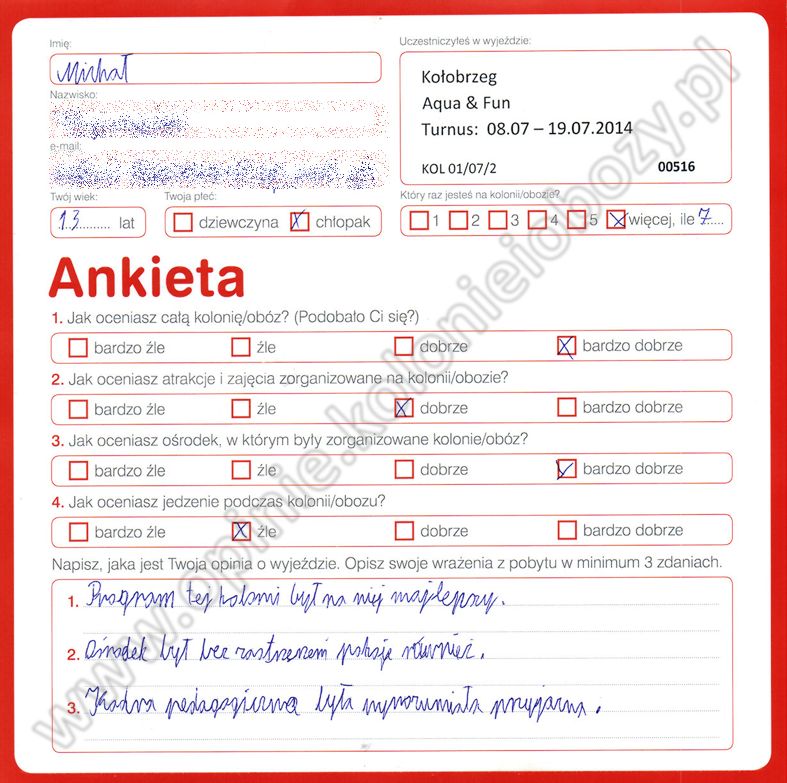 Imię:
Michał
Nazwisko:
e-mail:
Twój wiek:
13 lat
Twoja płeć:
dziewczyna X chłopak
Uczestniczyłeś w wyjeździe:
Kołobrzeg
Aqua & Fun
Turnus: 08.07 – 19.07.2014
KOL 01/07/2 00516
Który raz jesteś na kolonii/obozie?
1 2 3 4 5 X więcej, ile 7
Ankieta
1. Jak oceniasz całą kolonię/obóz? (Podobało Ci się?)
bardzo źle źle dobrze X bardzo dobrze
2. Jak oceniasz atrakcje i zajęcia zorganizowane na kolonii/obozie?
bardzo źle źle X dobrze bardzo dobrze
3. Jak oceniasz ośrodek, w którym były zorganizowane kolonie/obóz?
bardzo źle źle dobrze bardzo dobrze
4. Jak oceniasz jedzenie podczas kolonii/obozu?
bardzo źle X źle dobrze bardzo dobrze
Napisz, jaka jest Twoja opinia o wyjeździe. Opisz swoje wrażenia z pobytu w minimum 3 zdaniach.
1. Program tej kolonii był na niej najlepszy.
2. Ośrodek był bez zastrzeżeń pokoje również.
3. Kadra pedagogiczna była wyrozumiała przyjazna.
www.opinie.kolonieiobozy.pl